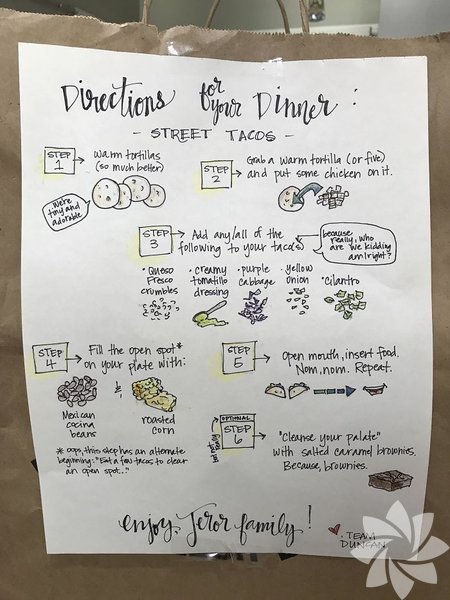 Directions for your Dinner:
- STREET TACOS -
STEP 1
Warm tortillas
(so much better)
We're
tiny and
adorable
STEP 2
Grab a warm tortilla (or five)
and put some chicken on it.
STEP 3
Add any/all of the
following to your taco(s)
because
really, who
are we kidding
am I right?
• Queso
Fresco
crumbles
• creamy
tomatillo
dressing
• purple
cabbage
• yellow
onion
• cilantro
STEP 4
Fill the open spot*
on your plate with:
Mexican
cocina
beans
&
roasted
corn
* oops, this step has an alternate
beginning: "Eat a few tacos to clear
an open spot..."
STEP 5
Open mouth, insert food.
Nom, nom. Repeat.
OPTIONAL
but not
really
STEP 6
"Cleanse your palate"
with salted caramel brownies.
Because, brownies.
enjoy, Jeror family!
TEAM
DUNCAN